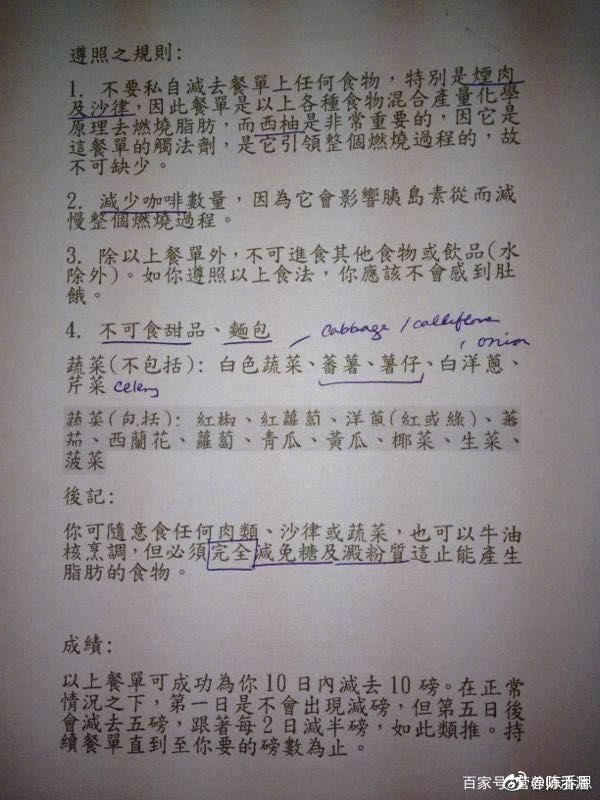 遵照之規則:
1. 不要私自減去餐單上任何食物，特別是煙肉
及沙律，因此餐單是以上各種食物混合產量化學
原理去燃燒脂肪，而西柚是非常重要的，因它是
這餐單的觸法劑，是它引領整個燃燒過程的，故
不可缺少。
2. 減少咖啡數量，因為它會影響胰島素從而減
慢整個燃燒過程。
3. 除以上餐單外，不可進食其他食物或飲品(水
除外)。如你遵照以上食法，你應該不會感到肚
餓。
4. 不可食甜品、麵包
cabbage / calliflower
, onion
蔬菜(不包括): 白色蔬菜、蕃薯、薯仔、白洋蔥、
芹菜 celery
蔬菜(包括): 紅椒、紅蘿蔔、洋蔥(紅或綠)、蕃
茄、西蘭花、蘿蔔、青瓜、黃瓜、椰菜、生菜、
菠菜
後記:
你可隨意食任何肉類、沙律或蔬菜，也可以牛油
核烹調，但必須完全減免糖及澱粉質這止能產生
脂肪的食物。
成績:
以上餐單可成功為你 10 日內減去 10 磅。在正常
情況之下，第一日是不會出現減磅，但第五日後
會減去五磅，跟著每 2 日減半磅，如此類推。持
續餐單直到至你要的磅數為止。
百家号